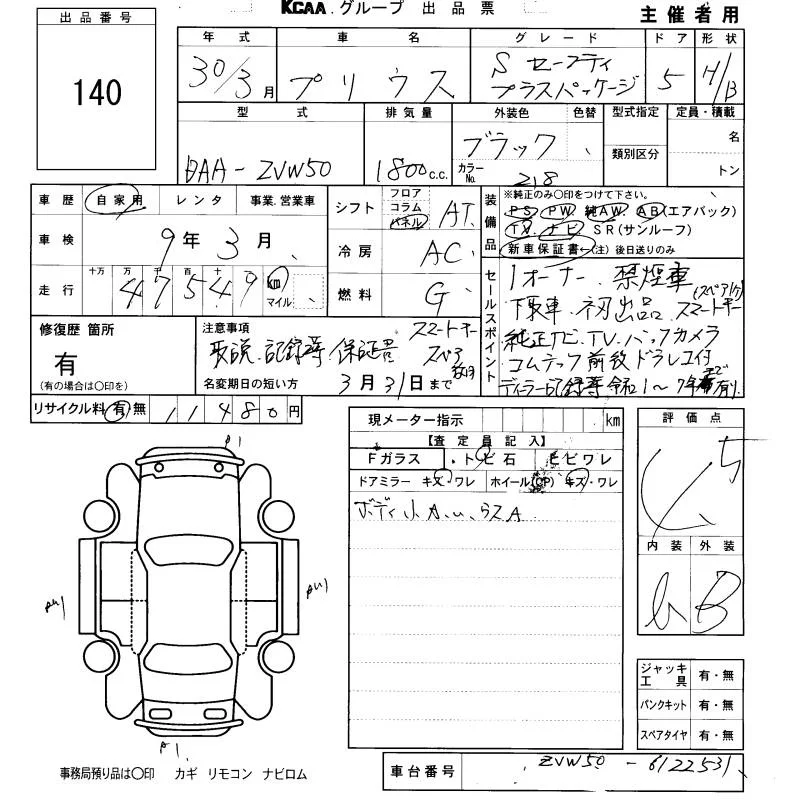 KCAA グループ 出品票
主催者用
出品番号
140
年式 車名 グレード ドア 形状
30/3月 プリウス Sセーフティ プラスパッケージ 5 H/B
型式 排気量 外装色 色替 型式指定 定員・積載
DAA-ZVW50 1800c.c. ブラック 類別区分 名
カラーNo. 218 トン
車歴 自家用 レンタ 事業.営業車
車検 9年3月
走行 十万 万 千 百 十
47549 km マイル
シフト フロア コラム パネル AT
冷房 AC
燃料 G
装備品 ※純正のみ〇印をつけて下さい。
PS PW 純AW. AB(エアバック)
TV. ナビ SR(サンルーフ)
新車保証書←(注)後日送りのみ
セールスポイント
1オーナー. 禁煙車
下取車. 初出品. スマートキー(スペア付)
純正ナビ.TV.バックカメラ
コムテック前後ドラレコ付
ディーラー記録簿令和1〜7年まで有り.
修復歴 箇所
有
(有の場合は〇印を)
注意事項 スマートキー
取説.記録簿 保証書 スペア
名変期日の短い方 3月31日まで
リサイクル料 有 無 11480円
現メーター指示 km
【査定員記入】
Fガラス ・トビ石 ヒビワレ
ドアミラー キズ・ワレ ホイール(CP) キズ・ワレ
ボディ小A.U.ラスA
評価点
5
内装 外装
B
P1
AU1
AU1
P1.
ジャッキ 工具 有・無
パンクキット 有・無
スペアタイヤ 有・無
事務局預り品は〇印 カギ リモコン ナビロム
車台番号 ZVW50-6122531